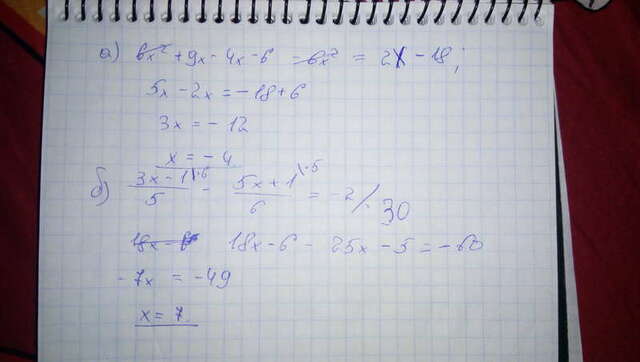 а) 6x² + 9x - 4x - 6 - 6x² = 2x - 18;
5x - 2x = -18 + 6
3x = -12
x = -4
б) (3x - 1)/5 \·6 - (5x + 1)/6 \·5 = -2 /·30
18x - 6 - 25x - 5 = -60
-7x = -49
x = 7